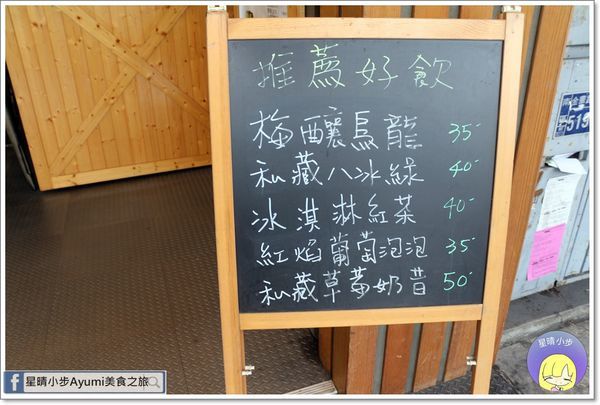 推薦好飲
梅釀烏龍 35
私藏八冰綠 40
冰淇淋紅茶 40
紅焰葡萄泡泡 35
私藏草莓奶昔 50
519
星晴小步
f 星晴小步Ayumi美食之旅